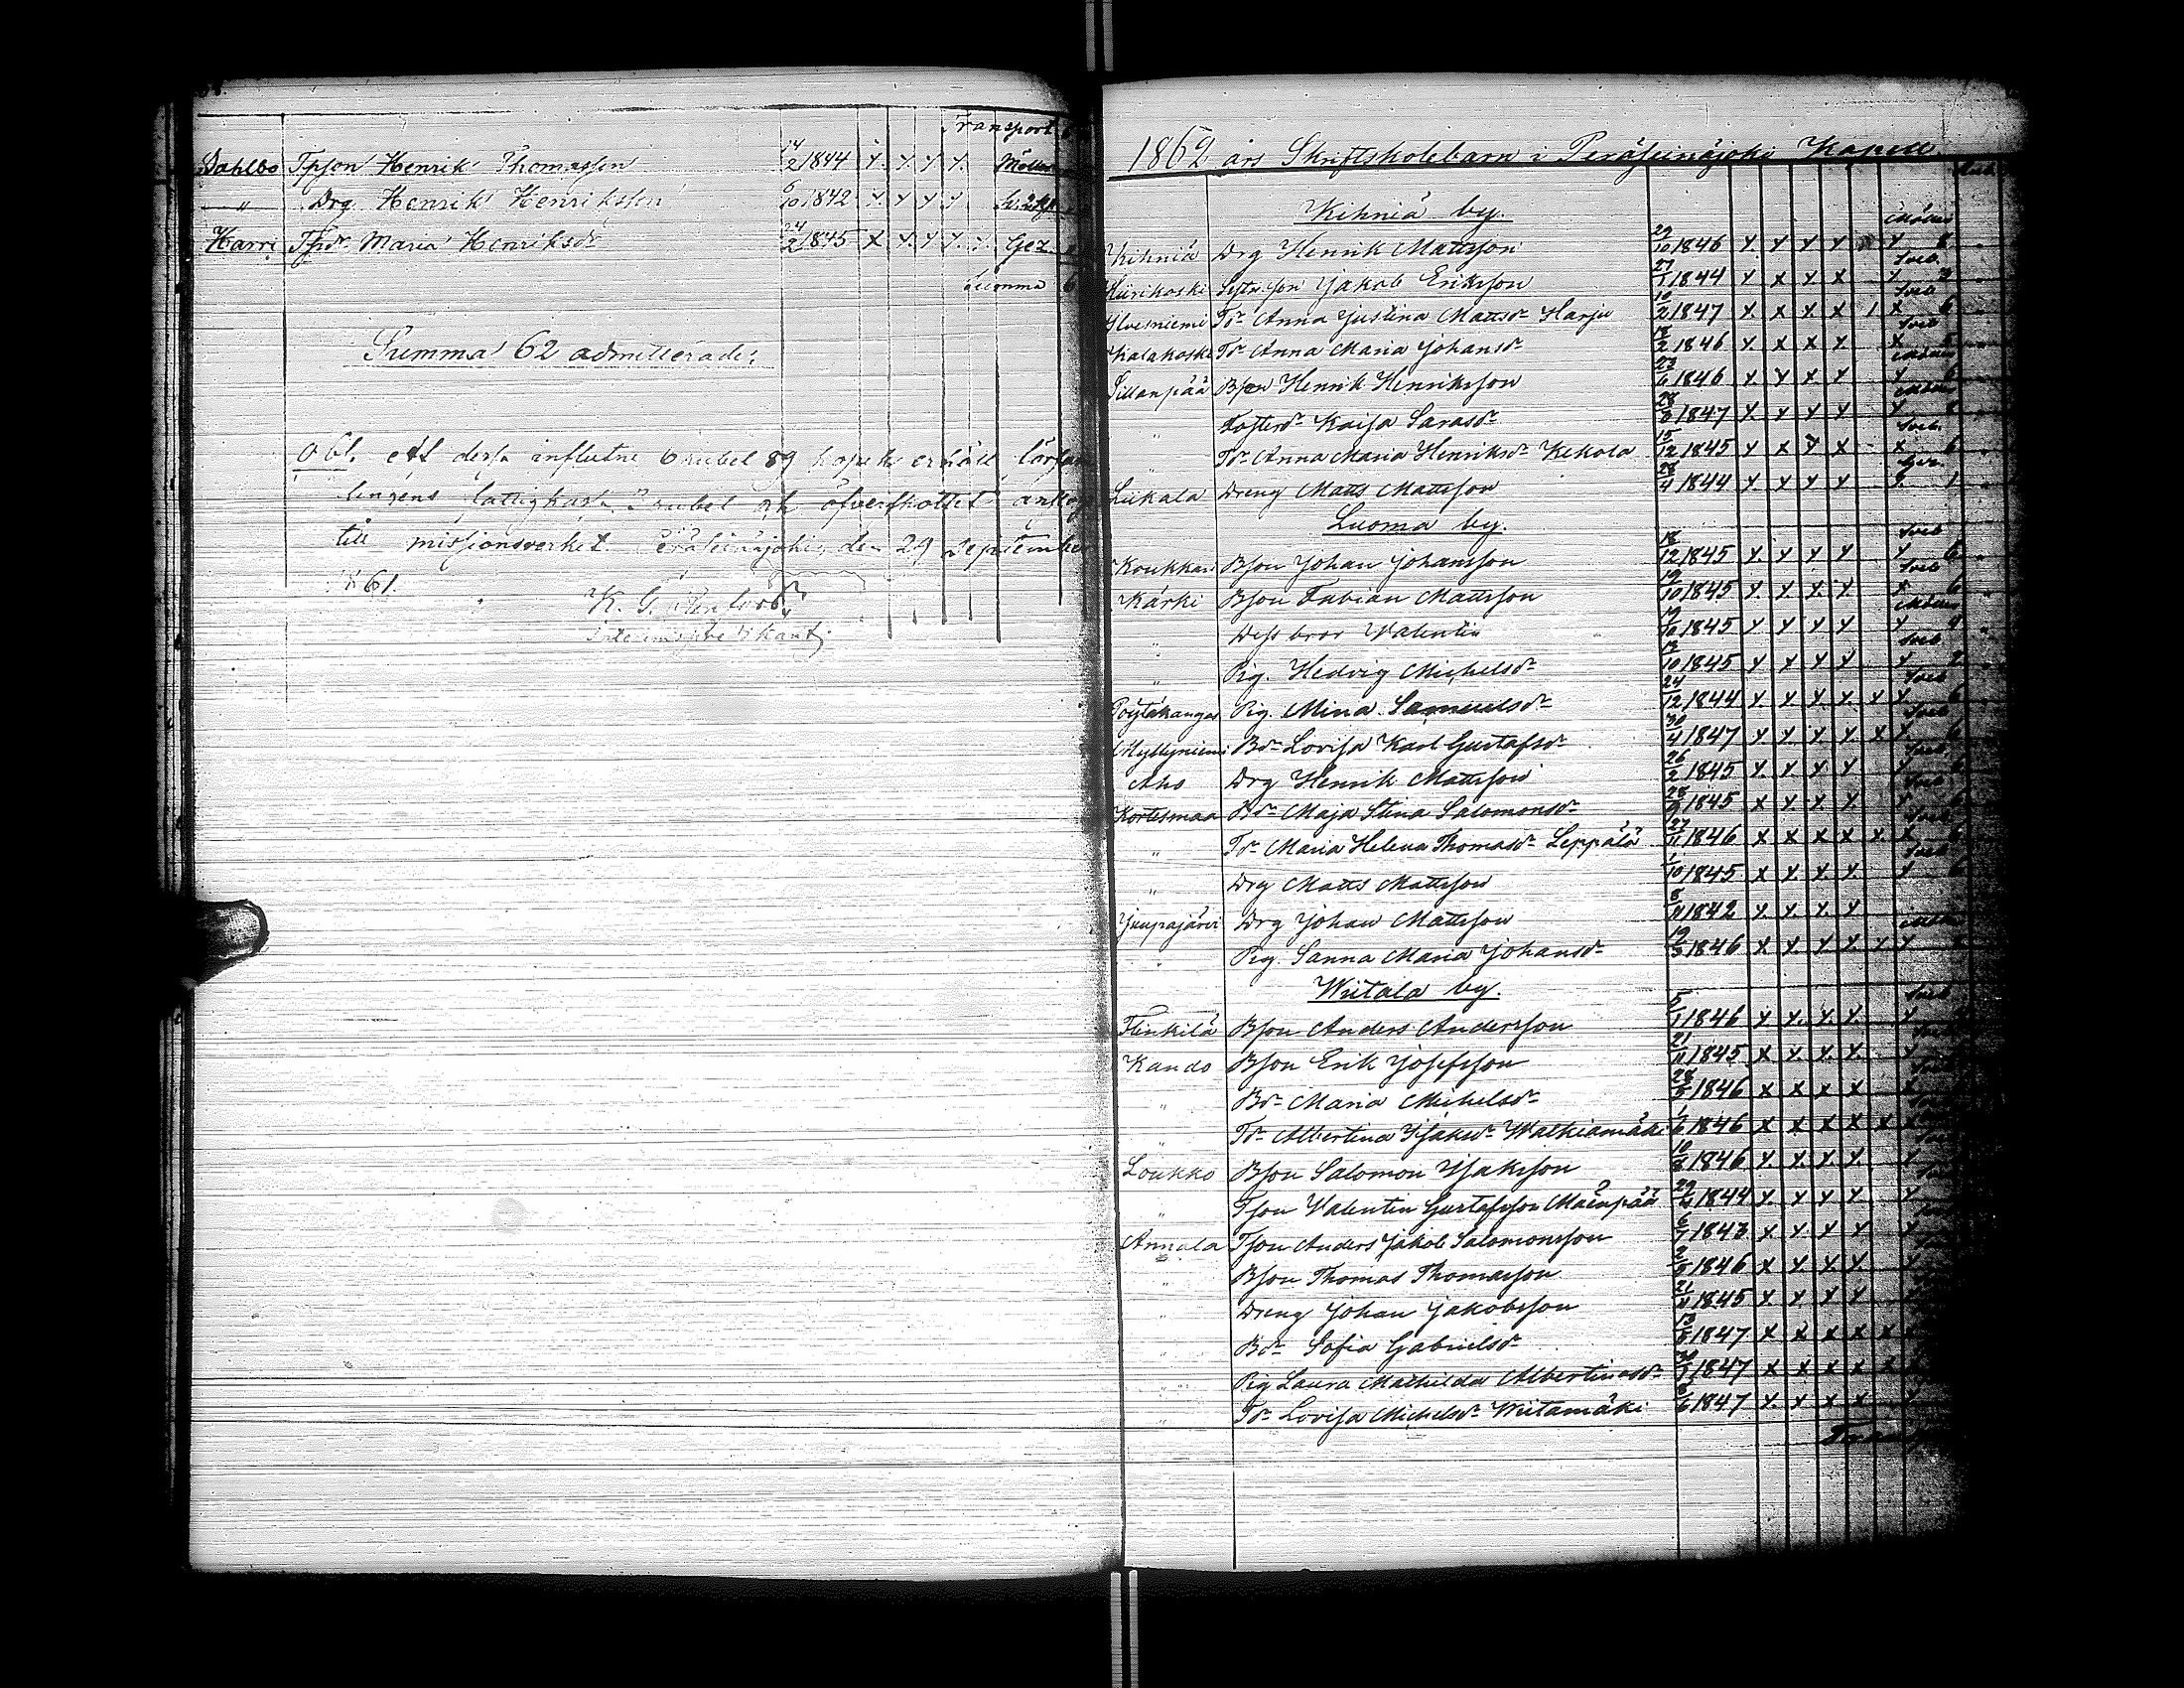 Transport
Dahlbo Tpson Henrik Thomasson 14/2 1844 Y. Y. Y Y. Möller
" Drg. Henrik Henriksson 6/10 1842 Y. Y Y Y
Harri Tfdr. Maria Henriksdr 24/2 1845 X Y. Y Y. Y. Gez
Summa 6
Summa 62 admitterade.
Obs. af dessa influtne 6 rubel 89 kopek erhöll församlingens fattigkassa 3 rubel och öfverskottet
till missionsverket. Peräseinäjoki, den 29 September
61.
K. G.
1862 års Skriftskolebarn i Peräseinäjoki Kapell
Kihniä by.
Kihniä Drg Henrik Mattsson 29/10 1846 Y. Y Y Y Y 8
Jakob Eriksson 27/1 1844 Y X Y. X Y 3
Ylvesniemi Tdr Anna Justina Mattsdr Harju 10/2 1847 Y. X Y. X 1 X 6
Kalakoski Tdr Anna Maria Johansdr 18/2 1846 Y. X X Y X 5
Sillanpää Bson Henrik Henriksson 23/6 1846 Y. Y X Y Y 6
" Fosterdr Kaisa Sarasdr 1847 Y. Y Y Y Y 8
" Tdr Anna Maria Henriksdr Kekola 15/12 1845 Y X Y X X 6
Liikala Dreng Matts Mattsson 28/4 1844 Y. Y Y Y 1
Luoma by.
Koukkari Bson Johan Johansson 18/12 1845 Y. Y Y Y Y 6
Kärki Bson Fabian Mattsson 19/10 1845 Y. Y. Y. Y. X 6
" Dess bror Valentin 19/10 1845 Y Y Y Y Y 4
" Pig. Hedvig Michelsdr 13/10 1845 Y X Y Y Y 2
Pöytäkangas Pig. Mina Samuelsdr 24/12 1844 Y Y Y. Y. Y Y. 6
Myllyniemi Bdr Lovisa Karl Gustafsdr 30/4 1847 Y Y Y. Y. X Y. 6
Aho Drg Henrik Mattsson 26/2 1845 Y. Y. Y. Y Y
Kortesmaa Bdr Maja Stina Salomonsdr 28/9 1845 X Y. Y. Y. Y 6
" Tdr Maria Helena Thomasdr Leppälä 27/11 1846 X X X X X. X 6
" Drg Matts Mattsson 1/10 1845 X Y. Y. Y. Y 6
Juupajärvi Drg Johan Mattsson 8/11 1842 Y. Y. Y. Y
" Pig. Sanna Maria Johansdr 19/3 1846 X Y. Y. Y. Y Y
Wiitala by.
Flinkilä Bson Anders Andersson 5/1 1846 Y Y. Y. Y. Y
Kando Bson Erik Josefsson 21/11 1845 X Y. Y. Y. Y
" Bdr Maria Michelsdr 28/5 1846 X X X X X
" Tdr Albertina Isaksdr Walkiamäki 1/6 1846 X X X X X X
Loukko Bson Salomon Isaksson 10/8 1846 Y. Y. Y. Y. Y
" Tson Valentin Gustafsson Mäenpää 1844 Y. Y Y Y Y
Annala Tson Anders Jakob Salomonsson 6/7 1843 X Y. Y Y Y
" Bson Thomas Thomasson 2/5 1846 X Y. Y. Y. Y
" Dreng Johan Jakobsson 21/11 1845 Y. Y Y Y
" Bdr Sofia Gabrielsdr 13/5 1847 X X X X X
" Pig Laura Mathilda Albertinasdr 1847 X X X X X
" Tdr Lovisa Michelsdr Wiitamäki 8/6 1847 Y. Y X X Y